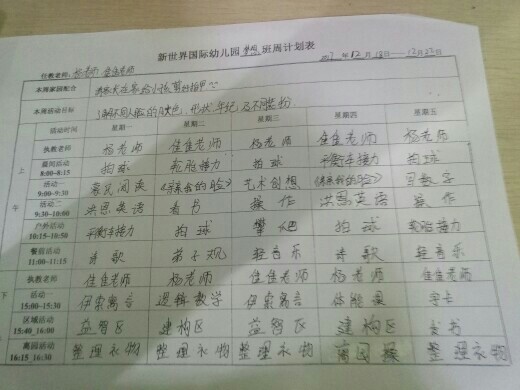 新世界国际幼儿园 梦想 班周计划表
任教老师: 杨老师 佳佳老师 12月18日——12月22日
本周家园配合
本周活动目标
活动时间 星期一 星期二 星期三 星期四 星期五
上午
执教老师 杨老师 佳佳老师 杨老师 佳佳老师 杨老师
晨间活动 8:00~8:15 拍球 轮胎接力 拍球 平衡车接力 拍球
活动一 9:00~9:30 亲民阅读 艺术创想 写数字
活动二 9:30~10:00 洪恩英语 看书 操作 洪恩英语 操作
户外活动 10:15~10:50 平衡车接力 拍球 攀爬 拍球 轮胎接力
餐前活动 11:00~11:15 诗歌 弟子规 轻音乐 诗歌 轻音乐
下
执教老师 佳佳老师 杨老师 佳佳老师 杨老师 佳佳老师
活动一 15:00~15:30 伊索寓言 逻辑数学 伊索寓言 体能课
区域活动 15:40_16:00 益智区 建构区 益智区 建构区 看书
离园活动 16:15_16:30 整理衣物 整理衣物 整理衣物 整理衣物